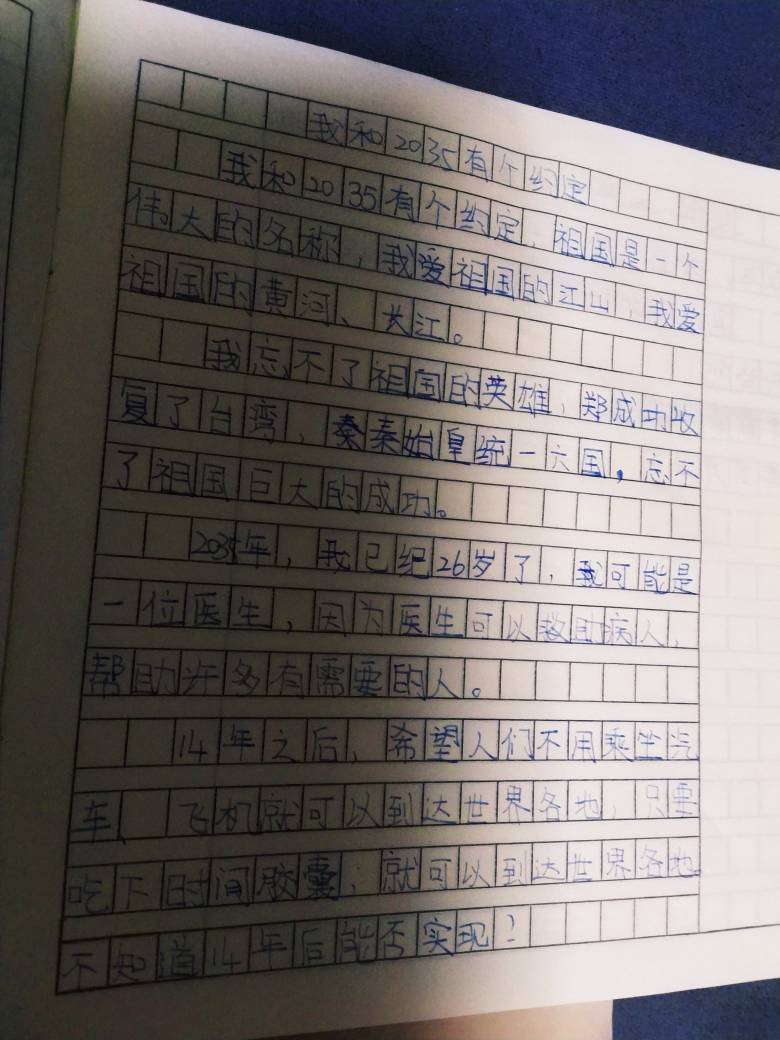 我和2035有个约定
我和2035有个约定，祖国是一个
伟大的名称，我爱祖国的江山，我爱
祖国的黄河、长江。
我忘不了祖国的英雄，郑成功收
复了台湾，秦秦始皇统一六国，忘不
了祖国巨大的成功。
2035年，我已纪26岁了，我可能是
一位医生，因为医生可以救助病人，
帮助许多有需要的人。
14年之后，希望人们不用乘坐汽
车、飞机就可以到达世界各地，只要
吃下时间胶囊，就可以到达世界各地。
不知道14年后能否实现？